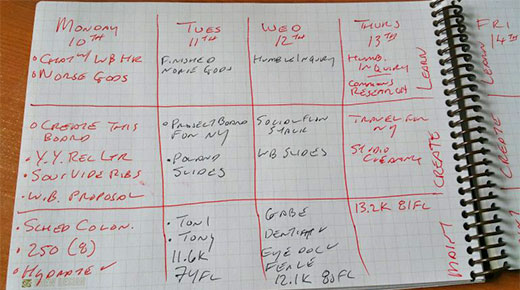 MONDAY
10TH
TUES
11TH
WED
12TH
THURS
13TH
FRI
14TH
• CHAT W/ WB HR
• NORSE GODS
FINISHED
NORSE GODS
HUMBLE INQUIRY
HUMB.
INQUIRY
COMMONS
RESEARCH
LEARN
• CREATE THIS
BOARD
• Y.Y. REC LTR
• SOUS VIDE RIBS
• W.B. PROPOSAL
• PROJECT BOARD
FOR NY
• POLAND
SLIDES
WB SLIDES
TRAVEL FOR
NY
STUDIO
CLEANING
CREATE
• SCHED COLON.
• 250 (8)
• HYDRATE ✓
• TONI
• TONY
11.6K
74FL
GABE
DENTIST ✓
EYE DOC ✓
12.1K 80FL
13.2K 81FL